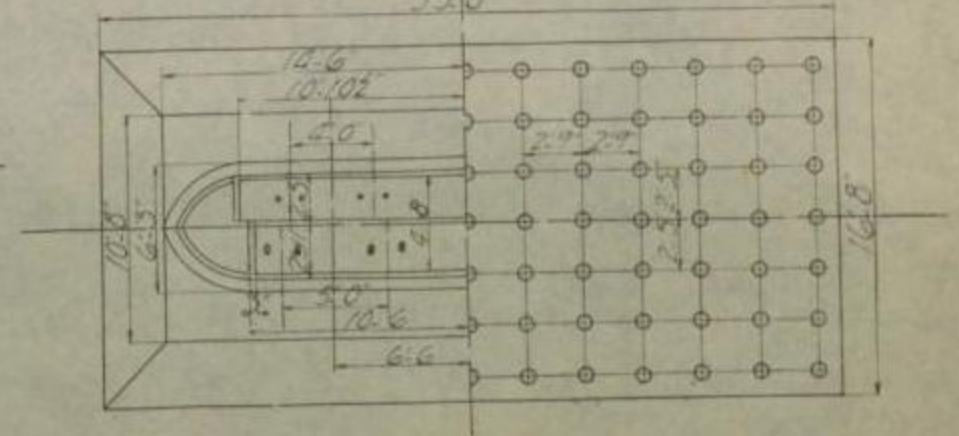 14'-6"
10'-10½"
4'-0"
2'-9" 2'-9"
2'-5"
2'-5" 2'-5"
10'-8"
6'-3"
4'-8
16'-8"
5'-0"
10'-6
6'-6